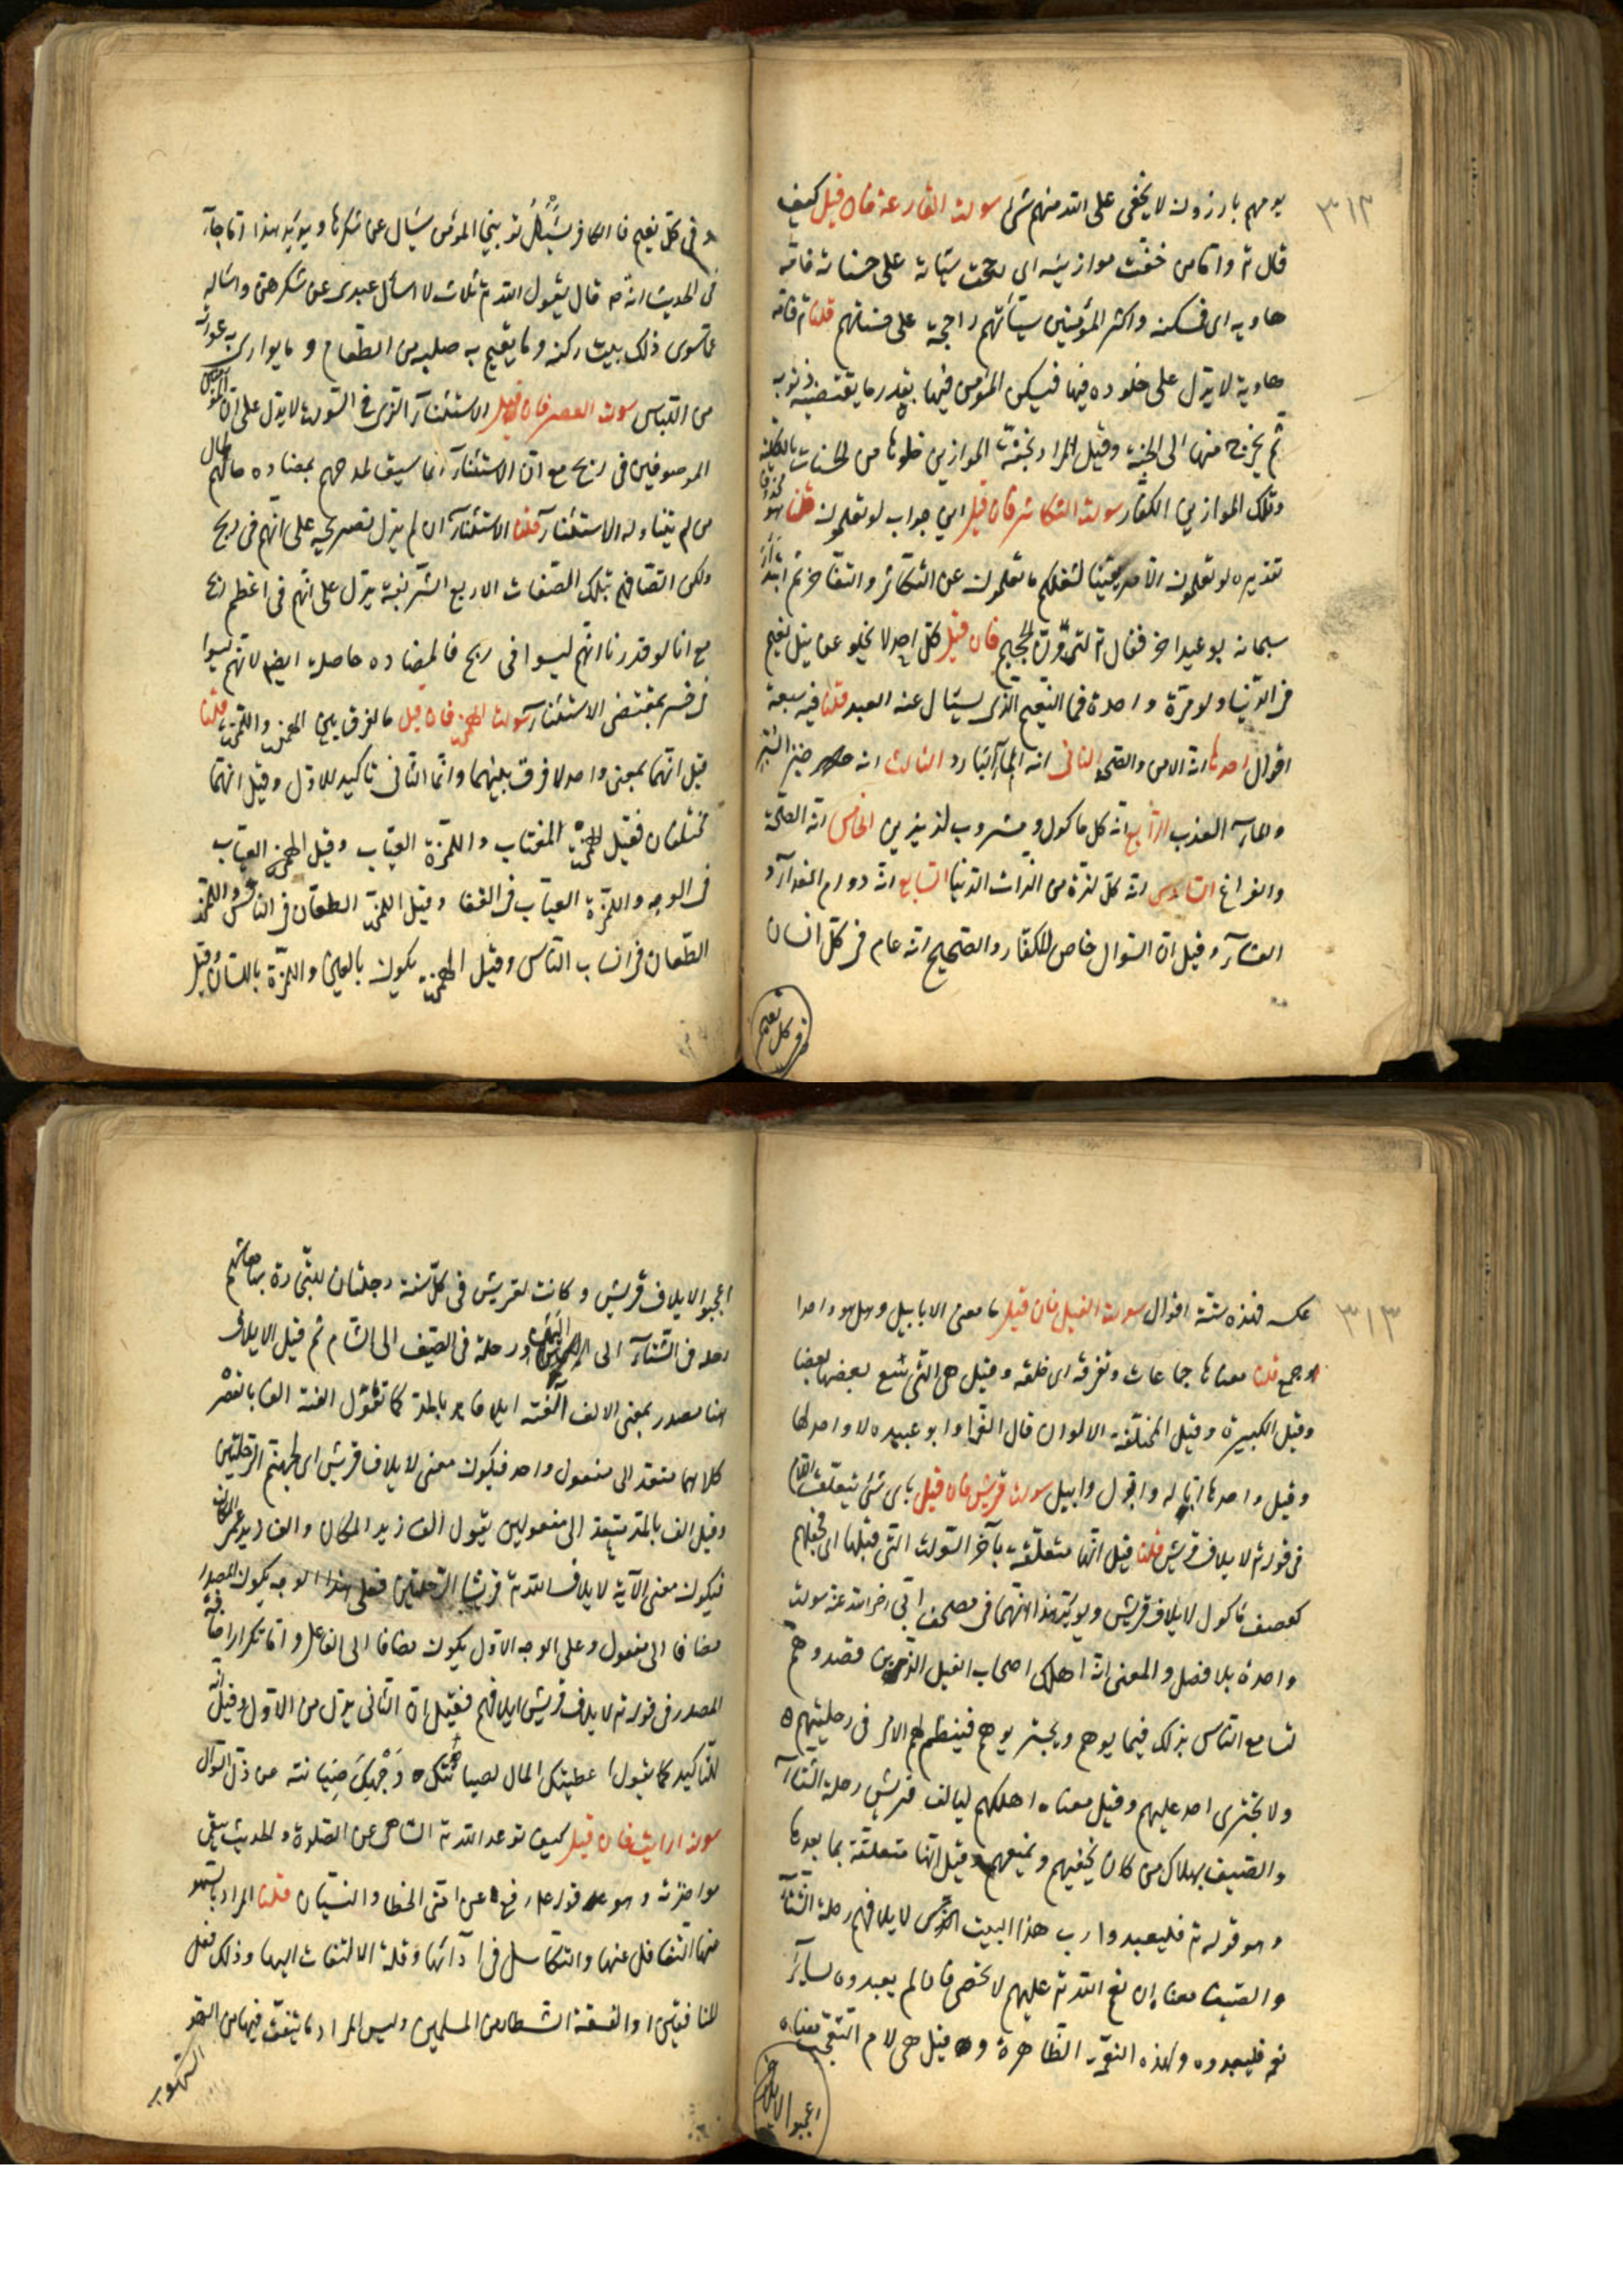 ٣١٢
يوم هم بارزون لا يخفى على الله منهم شئ سورة القارعة فان قيل كيف
قال تع واما من خفت موازينه اى رجحت سيّاته على حسناته فامّه
هاويه اى فمسكنه واكثر المؤمنين سيّآتهم راجحة على حسناتهم قلنا قوله تع فامه
هاوية لا يدل على خلوده فيها فيسكن المؤمن فيها بقدر ما يقتضيه ذنوبه
ثم يخرج منها الى الجنة وقيل المراد بخفّة الموازين خلوها من الحسنات بالكلية
وتلك الموازين الكفّار سورة التكاثر فان قيل اين جواب لو تعلمون قلنا هو محذوف
تقديره لو تعلمون الأمر يقينا لشغلكم ما تعلمون عن التكاثر والتفاخر ثم ابتدأ
سبحانه بوعيد اخر فقال تع لترونّ الجحيم فان قيل كل احد لا يخلو عن نيل نعيم
فى الدّنيا ولو مرّة واحدة فما النّعيم الّذى يسئال عنه العبد قلنا فيه سبعة
اقوال احدها انه الامن والصحّة الثانى انه المآء البارد الثالث انه خبز البرّ
والمآء العذب الرّابع انّه كل ماكول ومشروب لذيذين الخامس انه الصحّة
والفراغ السّادس انه كلّ لذة من لذّات الدّنيا السّابع انه دوام الغدآء و
العشآء وقيل ان السّؤال خاص للكفّار والصّحيح انه عام فى كلّ انسان
فى كل نعيم
وفى كلّ نعيم فالكافر يسئال توبيخا المؤمن يسئال عن شكرها ويؤيد هذا ما جآء
فى الحديث انّه م قال يقول الله تع ثلاث لا اسأل عبدى عن شكرهنّ واساله
عمّا سوى ذلك بيت يكنه وما يقيم به صلبه من الطّعام وما يوارى به عورته
من اللّباس سورة العصر فان قيل الاستثنآء الذى فى السّورة لا يدل على ان المؤمنين
الموصوفين فى ربح مع ان الاستثنآء انما سيق لمدحهم بمضادة حالهم لحال
من لم يتناوله الاستثنآء قلنا الاستثنآء ان لم يدل تصريحه على انّهم فى ربح
ولكن اتّصافهم بتلك الصّفات الاربع الشّريفة يدل على انّهم فى اعظم ربح
مع انا لو قدرنا انّهم ليسوا فى ربح فالمضاده حاصلة ايضا لانّهم ليسوا
فى خسر بمقتضى الاستثنآء سورة الهمزة فان قيل ما الفرق بين الهمزة واللّمزة قلنا
قيل انّهما بمعنى واحد لا فرق بينهما وانّما الثّانى تاكيد للاوّل وقيل انّهما
مختلفان فقيل الهمزة المغتاب واللّمزة العيّاب وقيل الهمزة العيّاب
فى الوجه واللّمزة العيّاب فى القفا وقيل الهمزة الطعّان فى النّاس واللّمزة
الطّعان فى انساب النّاس وقيل الهمزة يكون بالعين واللمزة باللسان وقيل
٣١٣
عكسه فهذه ستّة اقوال سورة الفيل فان قيل ما معنى الابابيل وهل هو واحد
او جمع قلنا معناها جماعات متفرقة اى حلقة وقيل هى الّتى يتبع بعضها بعضا
وقيل الكبيرة وقيل المختلفة الالوان قال الفرّا وابو عبيده لا واحد لها
وقيل واحدها ابّاله وابّول وابيل سورة قريش فان قيل باى شئ يتعلّق اللّام
فى قوله تع لايلاف قريش قلنا قيل انّها متعلّقة بآخر السّورة الّتى قبلها اى فجعلهم
كعصف مأكول لايلاف قريش ويؤيّد هذا انّهما فى مصحف ابىّ رضى الله عنه سورة
واحدة بلا فصل والمعنى انّه اهلك اصحاب الفيل الّذين قصدوهم
لتسامع النّاس بذلك فيهابوهم ويحترموهم فينتظم لهم الامر فى رحلتيهم
ولا يجترى احد عليهم وقيل معناه اهلكهم ليالف قريش رحلة الشّتآء
والصّيف بهلاك من كان يخيفهم ويمنعهم وقيل انّها متعلّقة بما بعدها
وهو قوله تع فليعبدوا رب هذا البيت الذى لايلافهم رحلة الشّتآء
والصّيف معناه ان نعم الله تع عليهم لا تحصى فان لم يعبدوه لسآير
نعمه فليعبدوه لهذه النّعمة الظّاهرة وقيل هى لام التعجّب معناه
اعجبوا لايلاف
اعجبوا لايلاف قريش وكانت لقريش فى كلّ سنة رحلتان للتّجارة بها معاشهم
رحلة فى الشّتآء الى اليمن ورحلة فى الصّيف الى الشّام ثم قيل الايلاف
هنا مصدر بمعنى الالف آلفته ايلافا بالمد كما تقول الفته الفا بالقصر
كلاهما متعد الى مفعول واحد فيكون معنى لايلاف قريش اى لحبهم الرّحلتين
وقيل الف بالمد يتعد الى مفعولين يقول الف زيد المكان والف زيد عمرا المكان
فيكون معنى الآية لايلاف الله تع قريشا الرّحلتين فعلى هذا الوجه يكون المصدر
مضافا الى مفعول وعلى الوجه الاوّل يكون مضافا الى الفاعل واما تكرار اضافة
المصدر فى قوله تع لايلاف قريش ايلافهم فقيل ان الثّانى بدل من الاوّل وقيل انه
للتاكيد كما يقول اعطيتك المال لصيانتك وجهك صيانته عن ذلّ السّؤال
سورة ارايت فان قيل كيف توعد الله تع السّاهى عن الصّلوة والحديث ينفى
مواخذته وهو قوله عم رفع عن امّتى الخطا والنّسيان قلنا المراد بالسّهو
هنا التّغافل عنها والتّكاسل فى ادآئها وقلة الالتفات اليها وذلك فعل
المنافقين او الفسقة الشّطار من المسلمين وليس المراد ما يتّفق فيها من السّهو